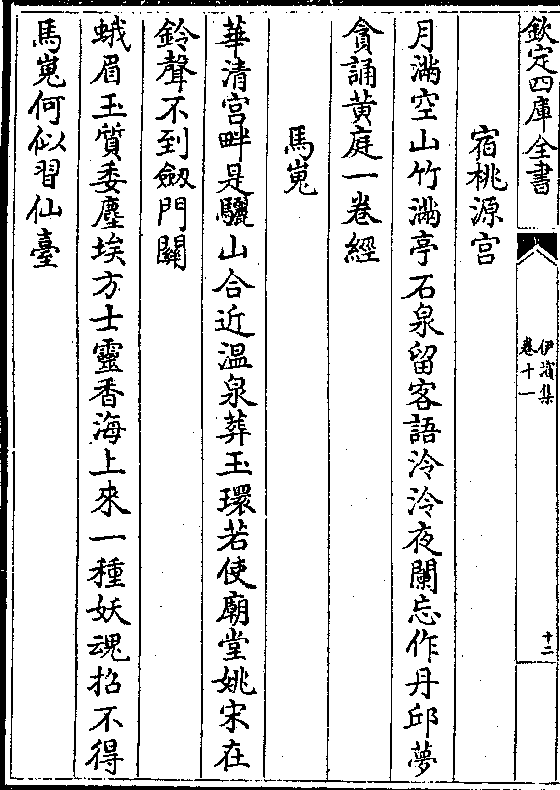 欽定四庫全書
伊濱集
卷十一
十二
宿桃源宮
月滿空山竹滿亭石泉留客語泠泠夜闌忘作丹邱夢
貪誦黄庭一卷經
馬嵬
華清宮畔是驪山合近溫泉葬玉環若使廟堂姚宋在
鈴聲不到劔門關
蛾眉玉質委塵埃方士靈香海上來一種妖魂招不得
馬嵬何似習仙臺